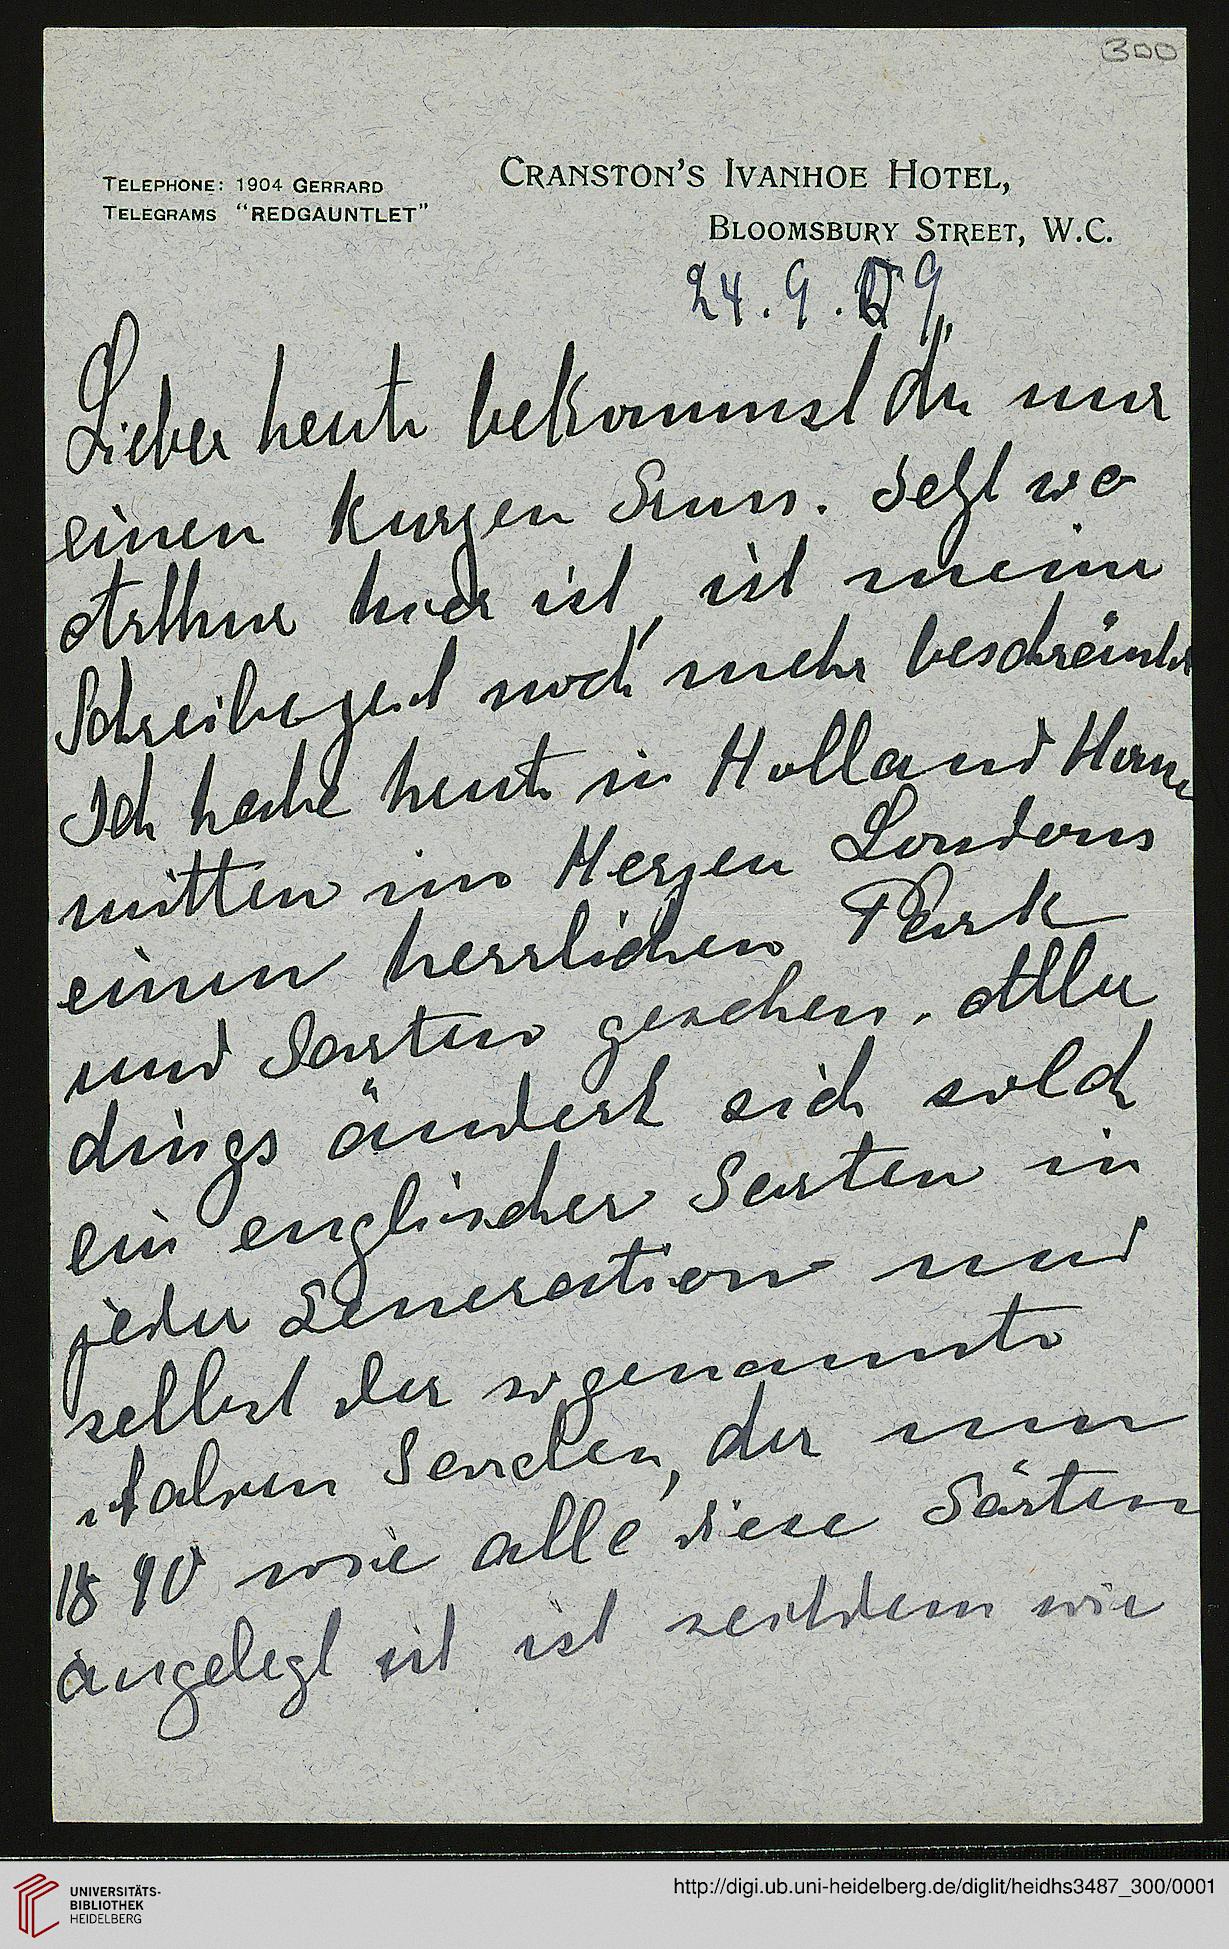 300
TELEPHONE: 1904 GERRARD
TELEGRAMS "REDGAUNTLET"
CRANSTON'S IVANHOE HOTEL,
BLOOMSBURY STREET, W.C.
24. 9. 09
Lieber heute bekommst du nur
einen kurzen Gruss. Jetzt wo
Arthur hier ist, ist meine
Schreibezeit noch mehr beschränkt
Ich habe heute in Holland House
mitten im Herzen Londons
einen herrlichen Park
und Garten gesehen. Aller
dings ändert sich solch
ein englischer Garten in
jeder Generation und
selbst der sogenannte
italien Garden, der nun
1890 wie alle diese Gärten
angelegt ist ist seitdem wie
UNIVERSITÄTS-
BIBLIOTHEK
HEIDELBERG
http://digi.ub.uni-heidelberg.de/diglit/heidhs3487_300/0001